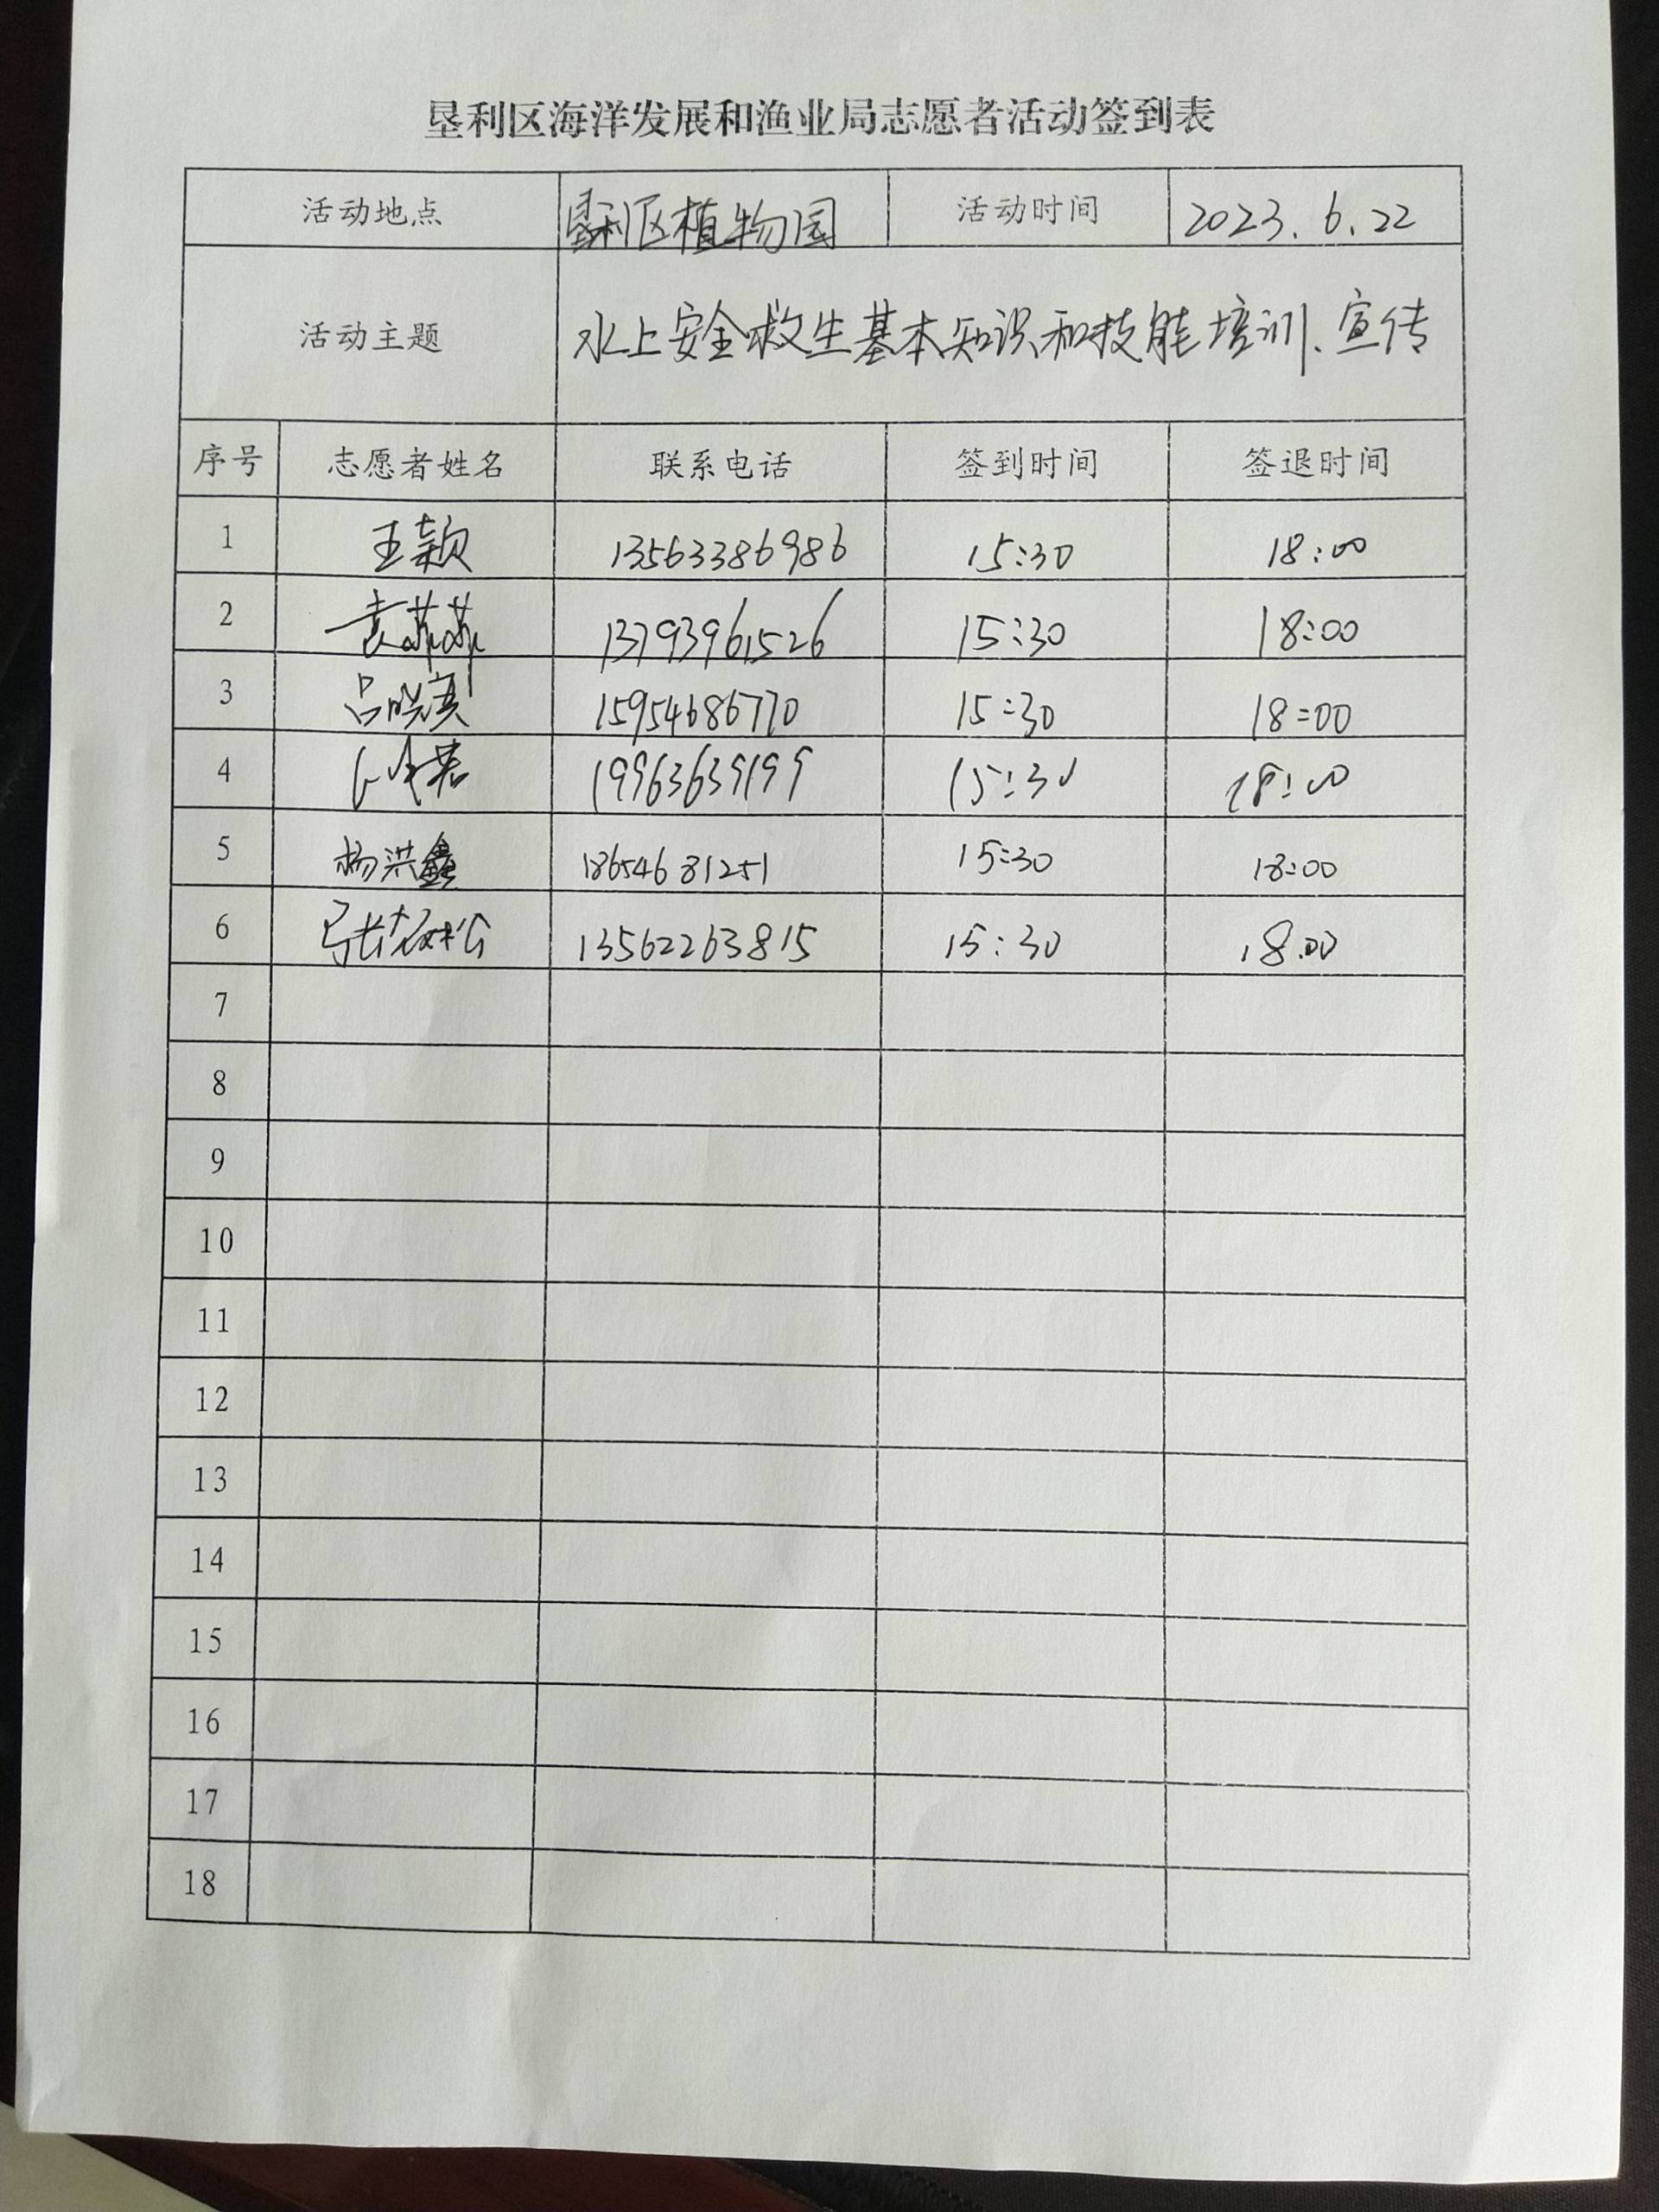 垦利区海洋发展和渔业局志愿者活动签到表
活动地点 垦利区植物园 活动时间 2023.6.22
活动主题 水上安全救生基本知识和技能培训、宣传
序号 志愿者姓名 联系电话 签到时间 签退时间
1 王颖 13563386986 15:30 18:00
2 袁苏苏 13793961526 15:30 18:00
3 吕晓 15954686770 15:30 18:00
4 19963639199 15:30 18:00
5 杨洪鑫 18654681251 15:30 18:00
6 13562263815 15:30 18.00
7
8
9
10
11
12
13
14
15
16
17
18